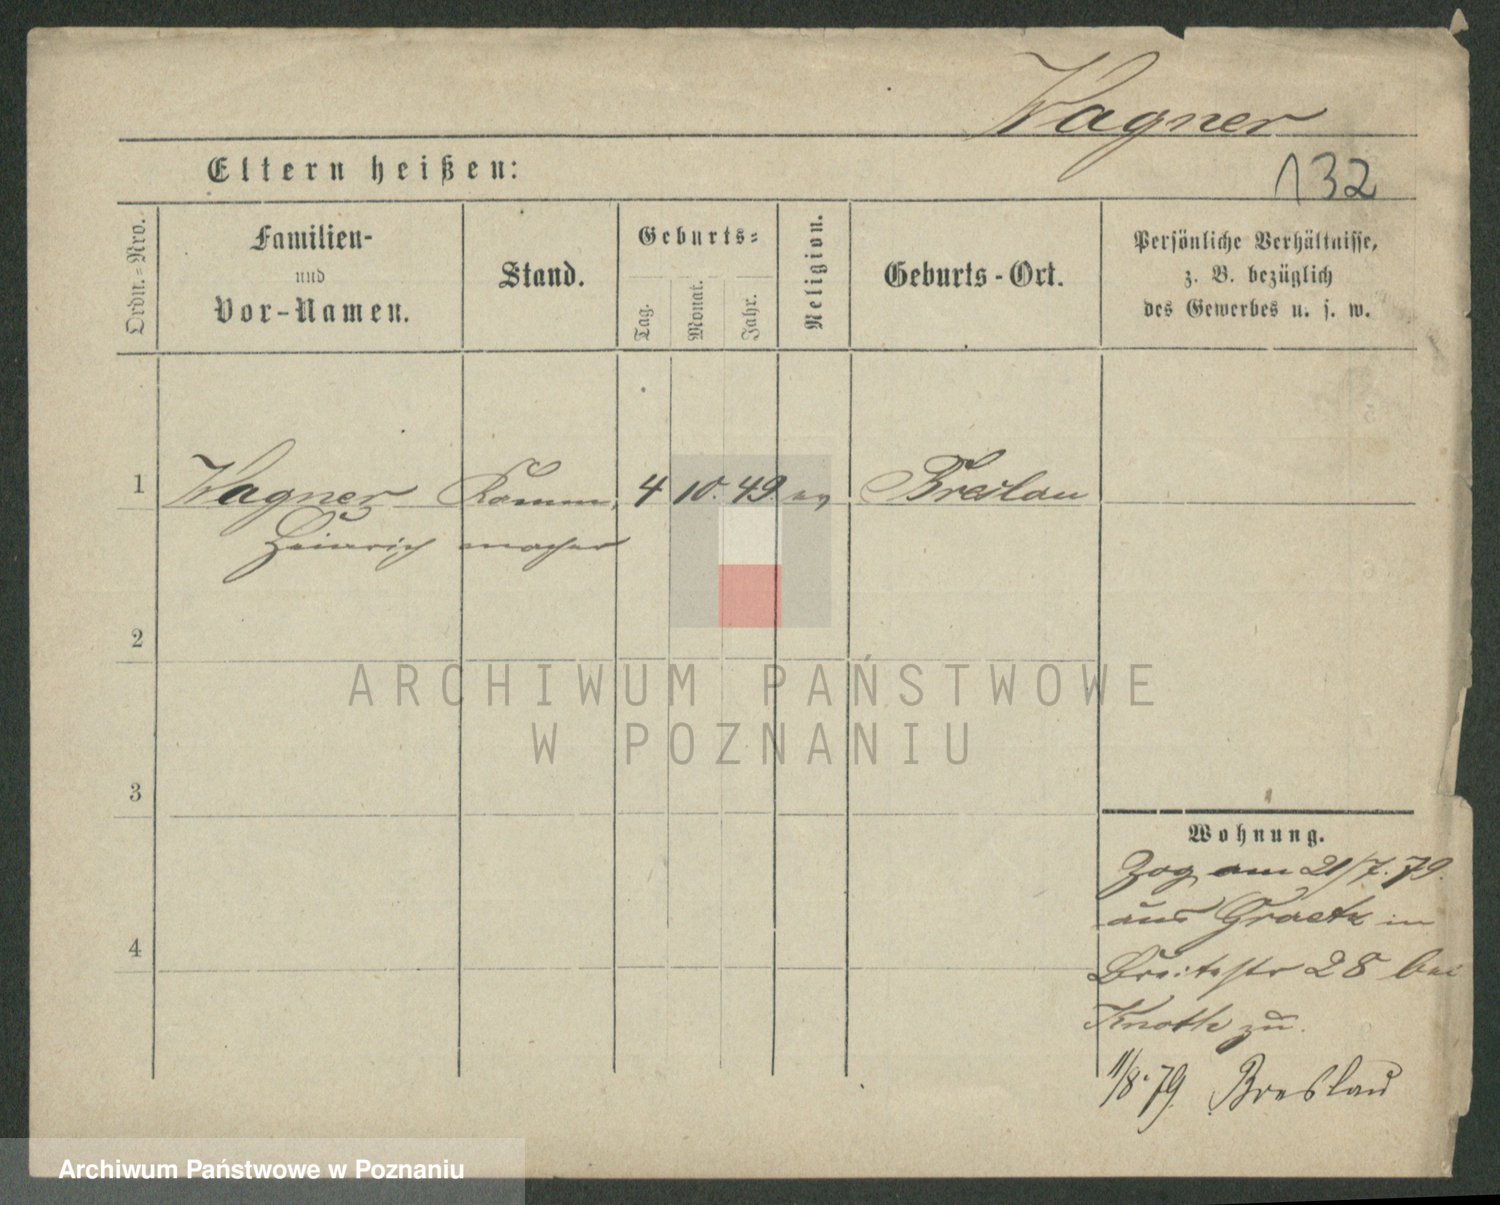 Wagner
Eltern heißen:
132
Ordn.=Nro.
Familien-
und
Vor-Namen.
Stand.
Geburts=
Tag.
Monat.
Jahr.
Religion.
Geburts-Ort.
Persönliche Verhältnisse,
z. B. bezüglich
des Gewerbes u. s. w.
1 Wagner Kamm, 4 10. 49. ev Breslau
Heinrich macher
2
3
4
Wohnung.
Zog am 21/7. 79.
aus Graetz in
Breitestr 28 bei
Knoth zu.
11/8. 79. Breslau
ARCHIWUM PAŃSTWOWE
W POZNANIU
Archiwum Państwowe w Poznaniu